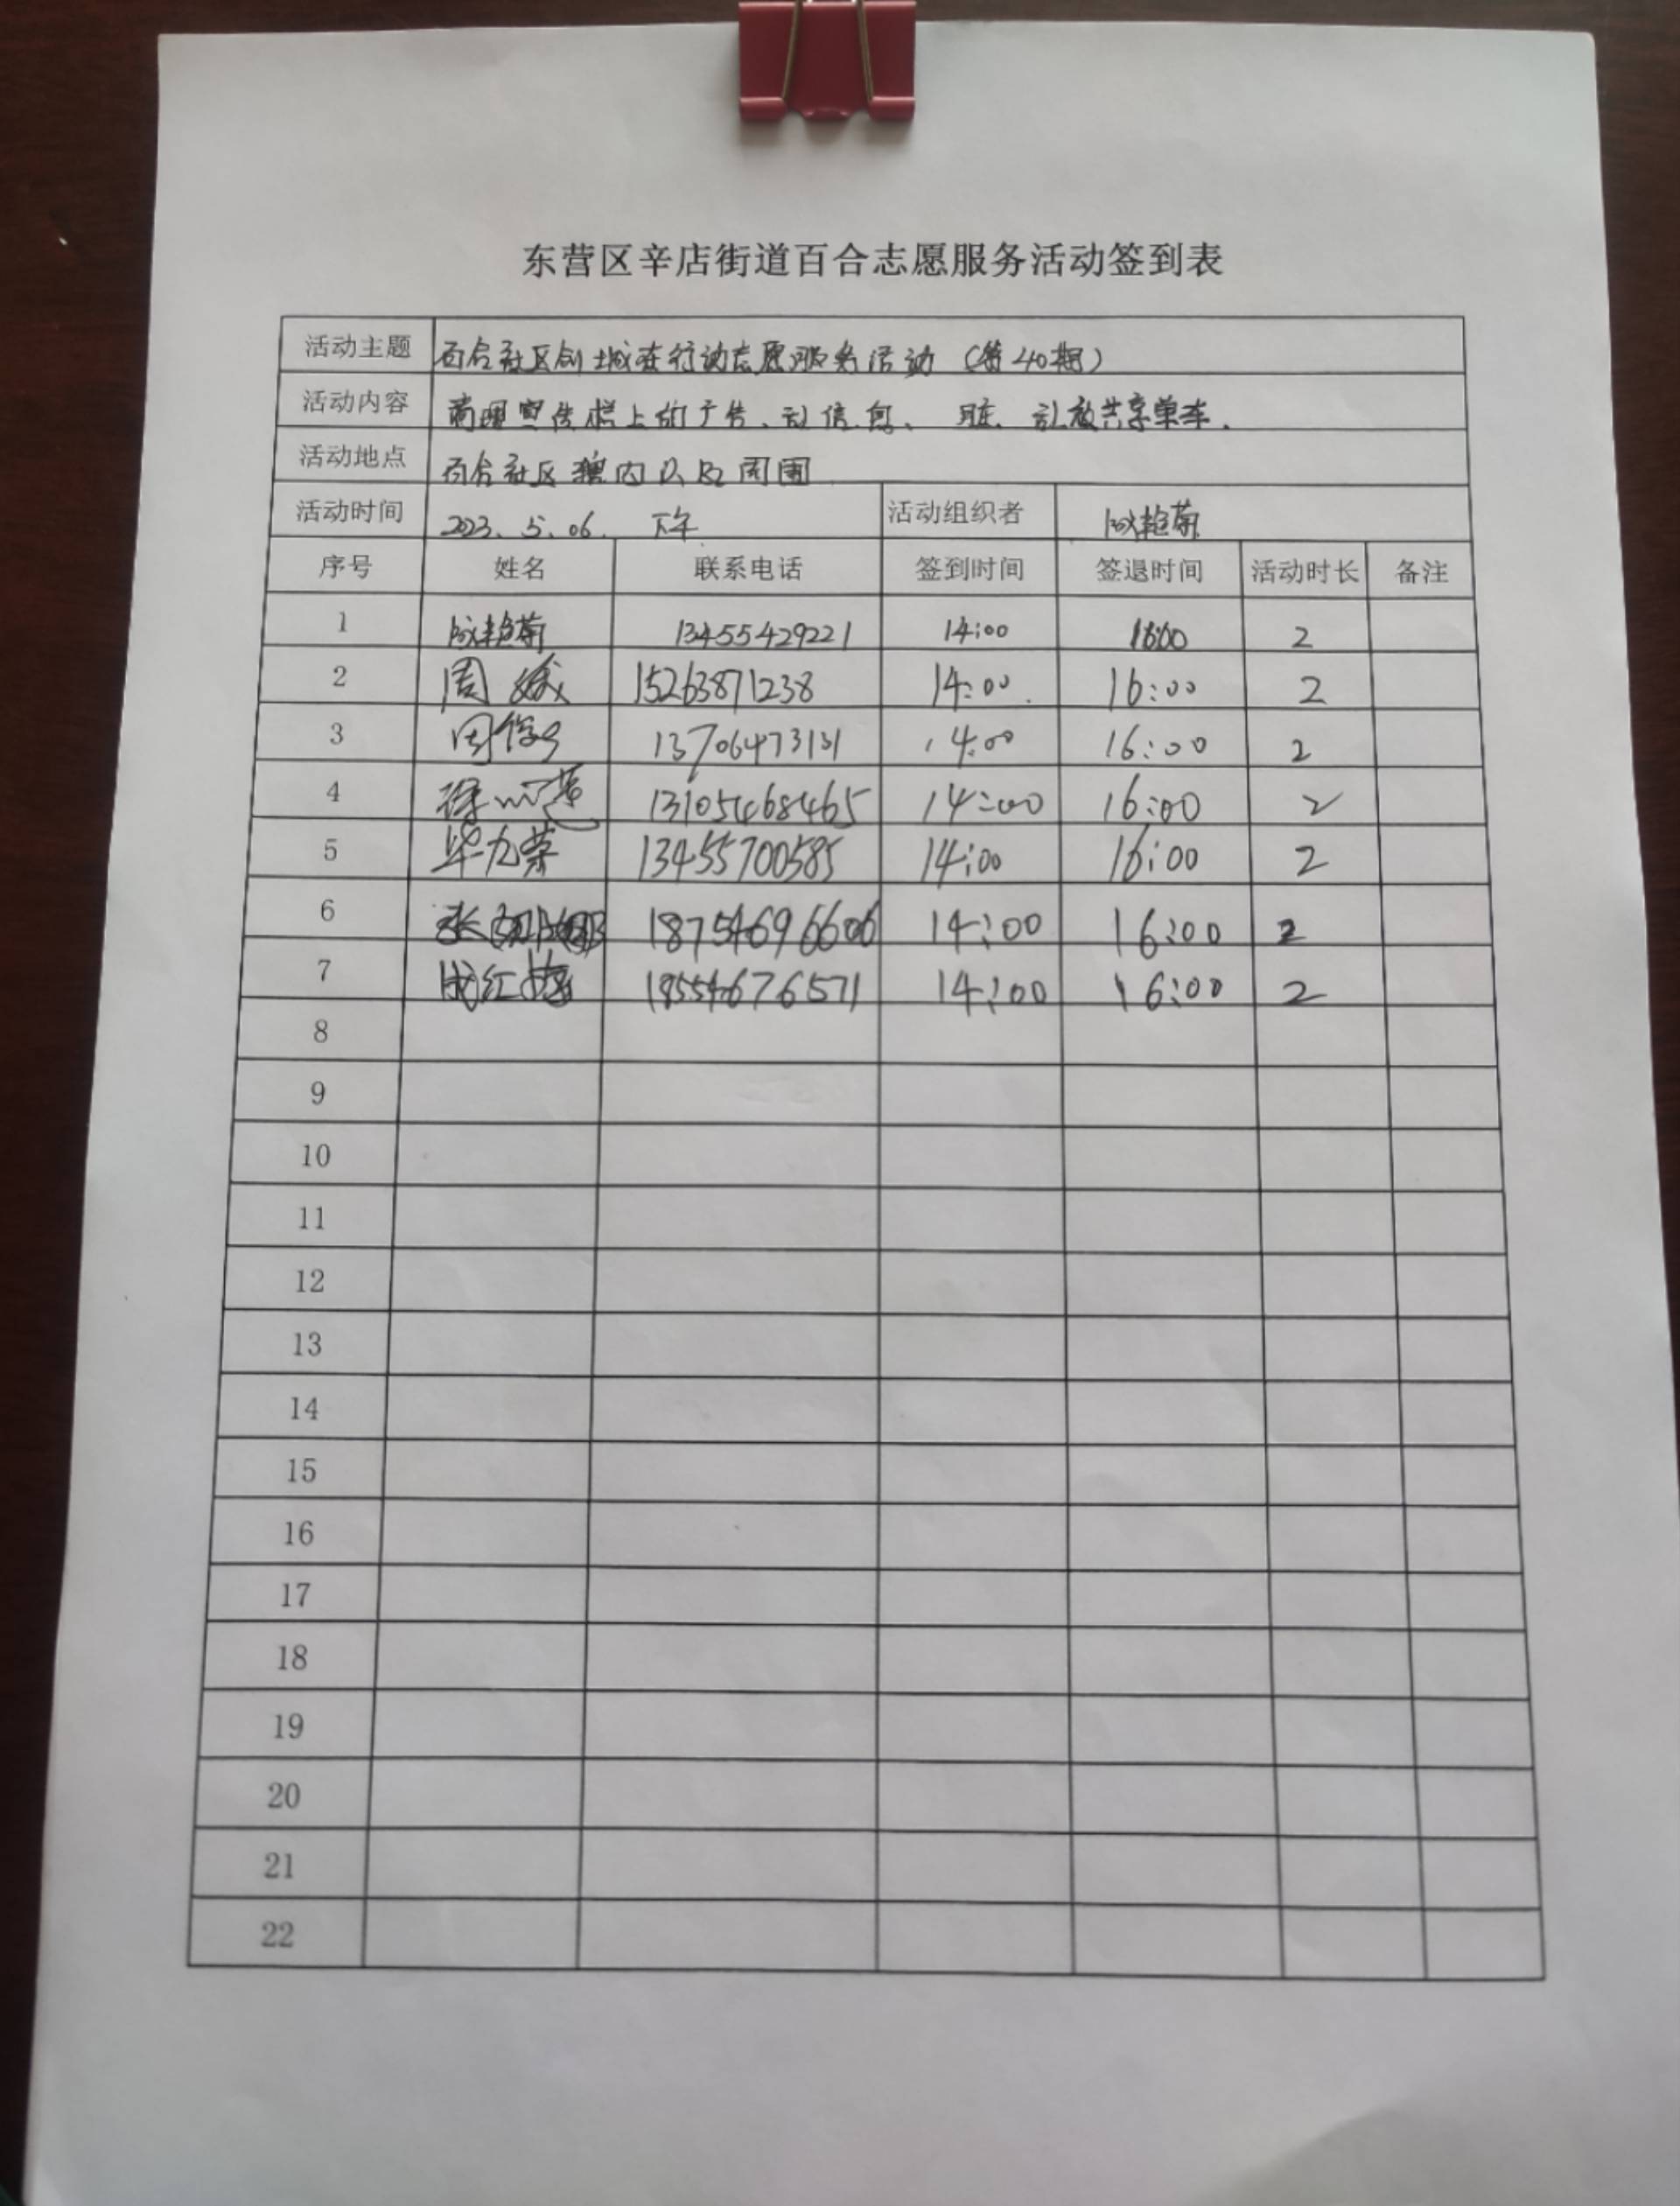 东营区辛店街道百合志愿服务活动签到表
活动主题 百合社区创城在行动志愿服务活动（第40期）
活动内容 清理宣传栏上的广告、乱信息、 乱放共享单车.
活动地点 百合社区 内以及周围
活动时间 2023.5.06. 下午 活动组织者
序号 姓名 联系电话 签到时间 签退时间 活动时长 备注
1 13455429221 14:00 16:00 2
2 周 15263871238 14:00 16:00 2
3 周 13706473131 14:00 16:00 2
4 徐 13105468465 14:00 16:00 2
5 毕九荣 13455700585 14:00 16:00 2
6 张 18754696606 14:00 16:00 2
7 成红 18554676571 14:00 16:00 2
8
9
10
11
12
13
14
15
16
17
18
19
20
21
22